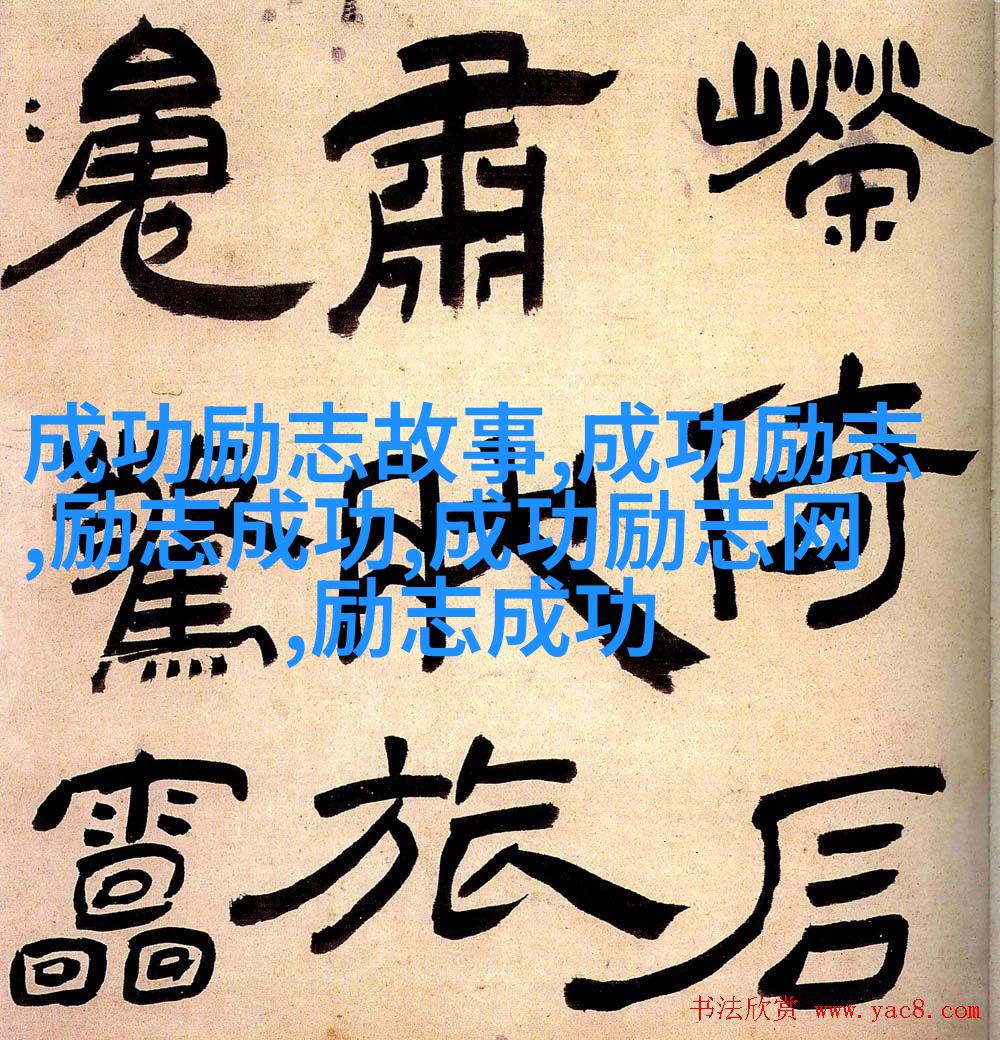 倚
肅旅
驚
成功励志故事,成功励志
,励志成功,成功励志网
,励志成功
书法欣赏 www.yac8.com